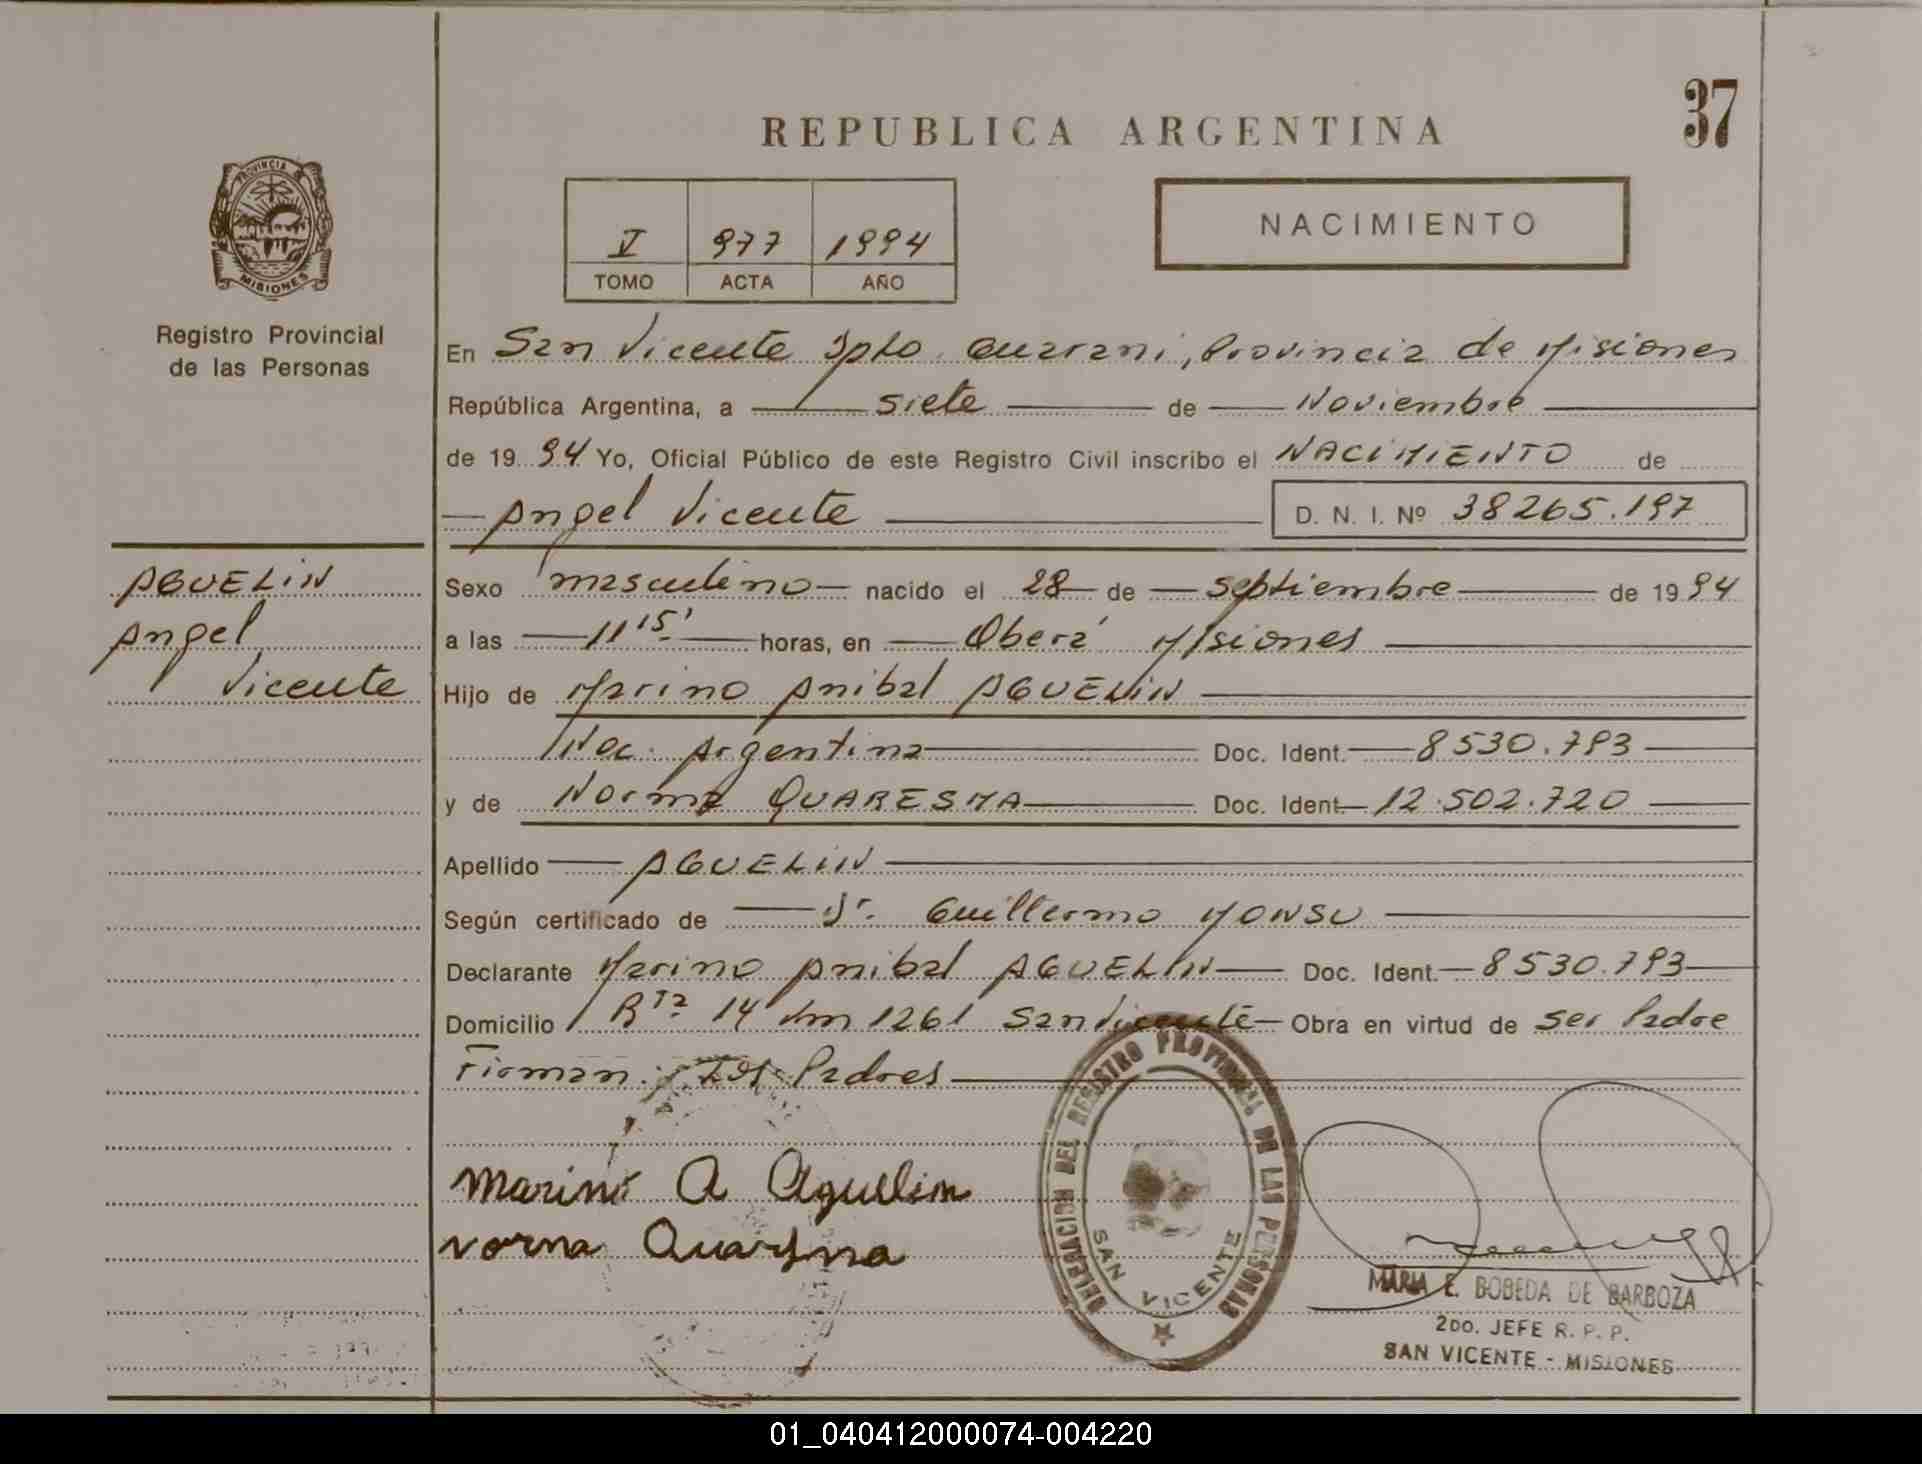 37
REPUBLICA ARGENTINA
PROVINCIA
MISIONES
Registro Provincial
de las Personas
V 977 1994
TOMO ACTA AÑO
NACIMIENTO
En San Vicente Dpto. Guarani, Provincia de Misiones
República Argentina, a siete de Noviembre
de 1994 Yo, Oficial Público de este Registro Civil inscribo el NACIMIENTO de
Angel Vicente D. N. I. Nº 38265.197
AGUELIN
Angel
Vicente
Sexo masculino nacido el 28 de septiembre de 1994
a las 11 15' horas, en Oberá Misiones
Hijo de Marino Anibal AGUELIN
Nac. Argentina Doc. Ident. 8530.793
y de Norma QUARESMA Doc. Ident. 12.502.720
Apellido AGUELIN
Según certificado de Dr. Guillermo MONSU
Declarante Marino Anibal AGUELIN Doc. Ident. 8530.793
Domicilio Rta 14 km 1261 San Vicente Obra en virtud de ser Padre
Firman: Los Padres
Marino A Aguelin
norma Quaresma
DELEGACION DEL REGISTRO PROVINCIAL DE LAS PERSONAS
SAN VICENTE
MARIA E. BOBEDA DE BARBOZA
2DO. JEFE R. P. P.
SAN VICENTE - MISIONES
01_040412000074-004220